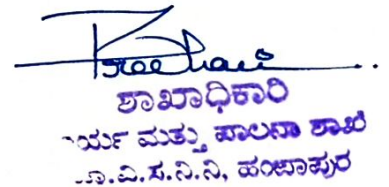 ಶಾಖಾಧಿಕಾರಿ
ಮತ್ತು ಪಾಲನಾ ಶಾಖೆ
ವಿ.ಸ.ನಿ.ನಿ, ಹಂಪಾಪುರ